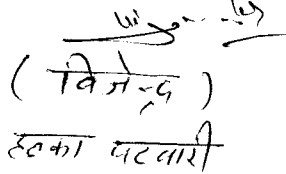 ( विजेन्द्र )
हल्का पटवारी